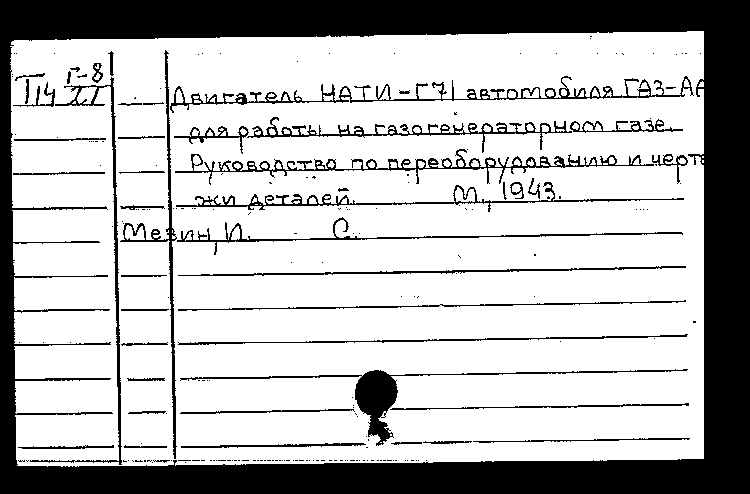 Г-8
Т14 XI
Двигатель НАТИ-Г71 автомобиля ГАЗ-АА
для работы на газогенераторном газе.
Руководство по переоборудованию и черте
жи деталей. М., 1943.
Мезин, И. С.